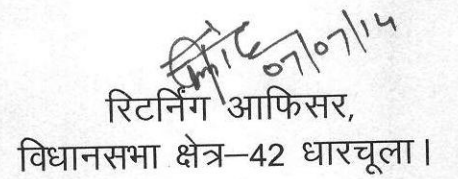 07/07/14
रिटर्निंग आफिसर,
विधानसभा क्षेत्र–42 धारचूला।